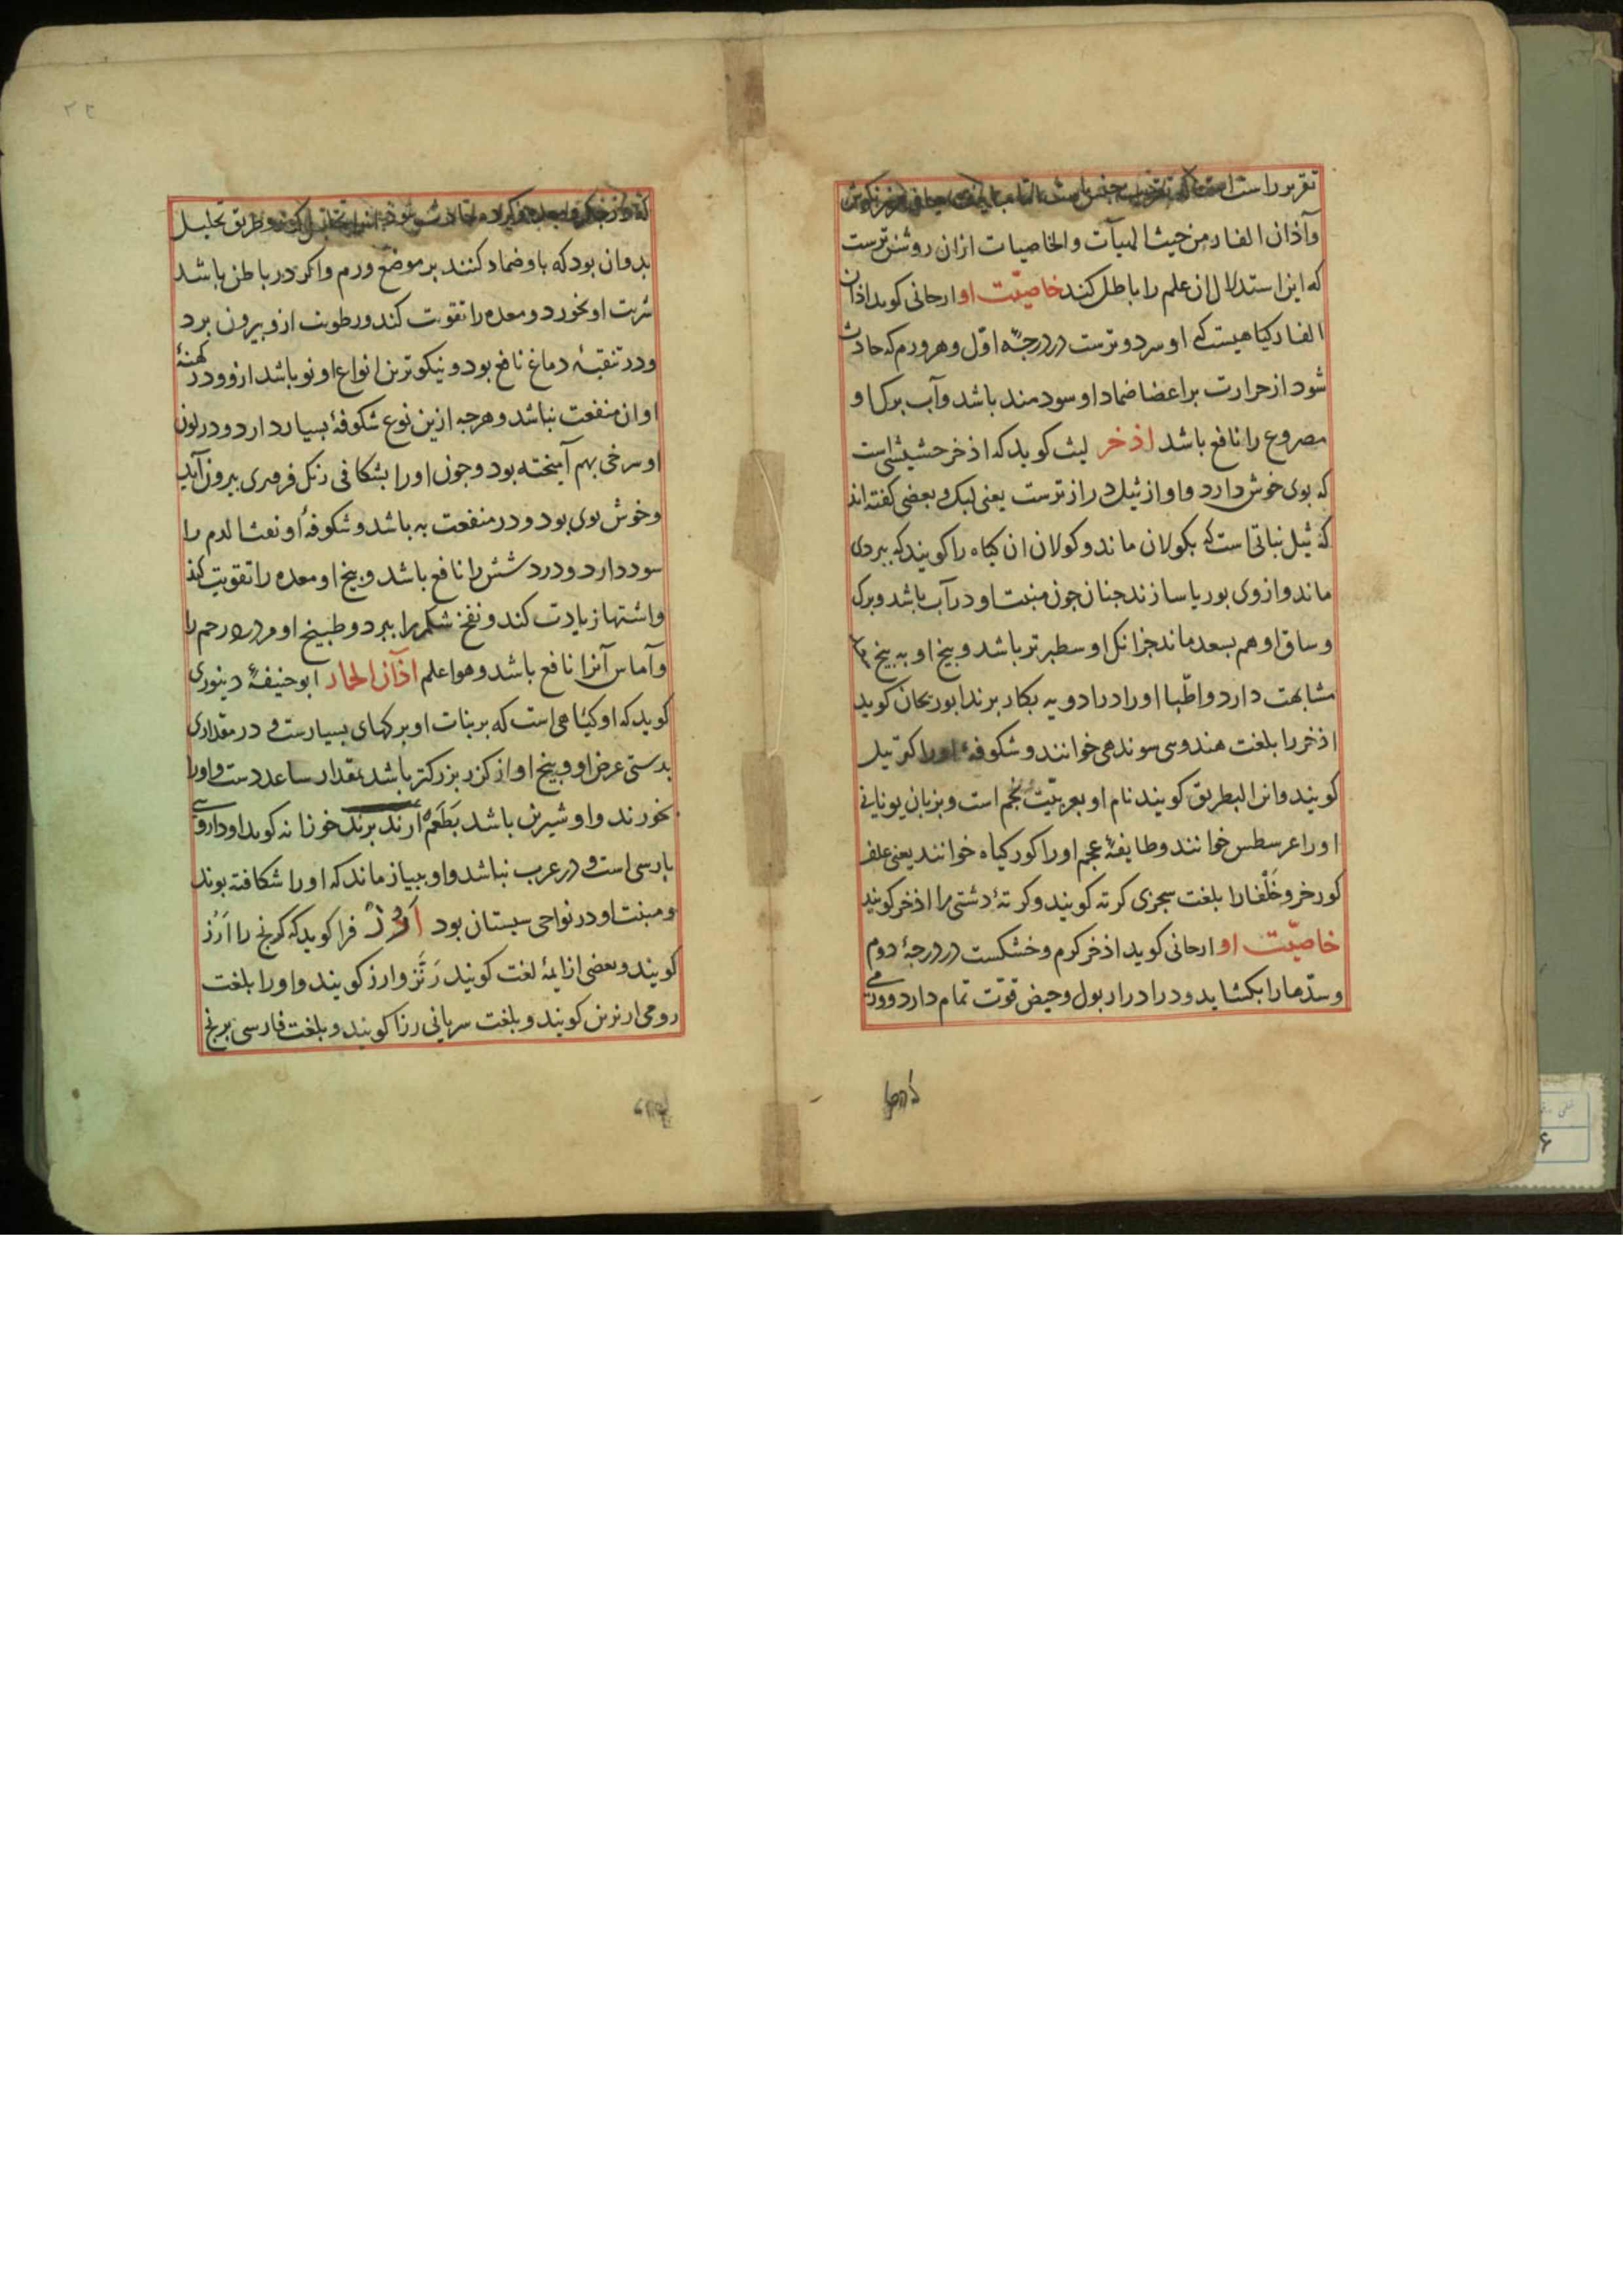 تقریر راست است
وآذان الفار من حیث الهیآت والخاصیات ازان روشن ترست
که این استدلال ان علم را باطل کند خاصیّت او ارجانی کوید اذان
الفار کیاهیست که او سرد و ترست در درجهٔ اوّل و هر ورم که حادث
شود از حرارت بر اعضا ضماد او سودمند باشد وآب برک او
مصروع را نافع باشد اذخر لیث کوید که اذخر حشیشی است
که بوی خوش دارد و او از ثیل دراز ترست یعنی لیک و بعضی کفته اند
که ثیل نباتی است که بکولان ماند و کولان ان کیاه را کویند که ببردی
ماند و ازوی بوریا سازند جنان جون منبت او در آب باشد و برک
و ساق او هم بسعد ماند جز انک او سطبر تر باشد و بیخ او به بیخ نی
مشابهت دارد و اطّبا او را در ادویه بکار برند ابو ریحان کوید
اذخر را بلغت هندوی سوندهی خوانند و شکوفهٔ او را کوتیل
کویند وانرا البطریق کویند نام او بعربیّت نجم است و بزبان یونانی
او را عرسطس خوانند و طایفهٔ عجم او را کور کیاه خوانند یعنی علف
کورخر و خَلْفا را بلغت سجزی کرته کویند و کرتهٔ دشتی را اذخر کویند
خاصیّت او ارجانی کوید اذخر کرم و خشکست در درجهٔ دوم
و سدّها را بکشاید و در ادرار بول و حیض قوّت تمام دارد و ورمی
که در جکر و معده و کرده حادث شود انرا تحلیل کند و طریق تحلیل
بدوان بود که باو ضماد کنند بر موضع ورم و اکر در باطن باشد
شربت او بخورد و معده را تقویت کند و رطوبت ازو بیرون برد
و در تنقیهٔ دماغ نافع بود و نیکوترین انواع او نو باشد ازو و در کهنهٔ
او ان منفعت نباشد و هرجه ازین نوع شکوفهٔ بسیار دارد و در لون
او سرخی بهم آمیخته بود و جون او را بشکافی رنک فرفیری بیرون آید
و خوش بوی بود و در منفعت به باشد و شکوفهٔ او نفث الدم را
سود دارد و درد شش را نافع باشد و بیخ او معده را تقویت کند
و اشتها زیادت کند و نفخ شکم را ببرد و طبیخ او مر درد رحم را
و آماس آنرا نافع باشد و هو اعلم اذآن الحمار ابو حنیفهٔ دینوری
کوید که او کیاهی است که بر نبات او برکهای بسیارست و در مقداری
بدستی عرض او و بیخ او از کزر بزرکتر باشد بمقدار ساعد دست و او را
بخورند و او شیرین باشد بَطَعم ارند برند خوزانه کوید او داروی
بارسی است و در عرب نباشد و او ببیاز ماند که او را شکافته بوند
و منبت او در نواحی سیستان بود اَرُزّ فرا کوید که کرنج را اَرُز
کویند و بعضی از ایمهٔ لغت کویند رَنَز و ارز کویند و او را بلغت
رومی ارنزن کویند و بلغت سریانی رزا کویند و بلغت فارسی برنج